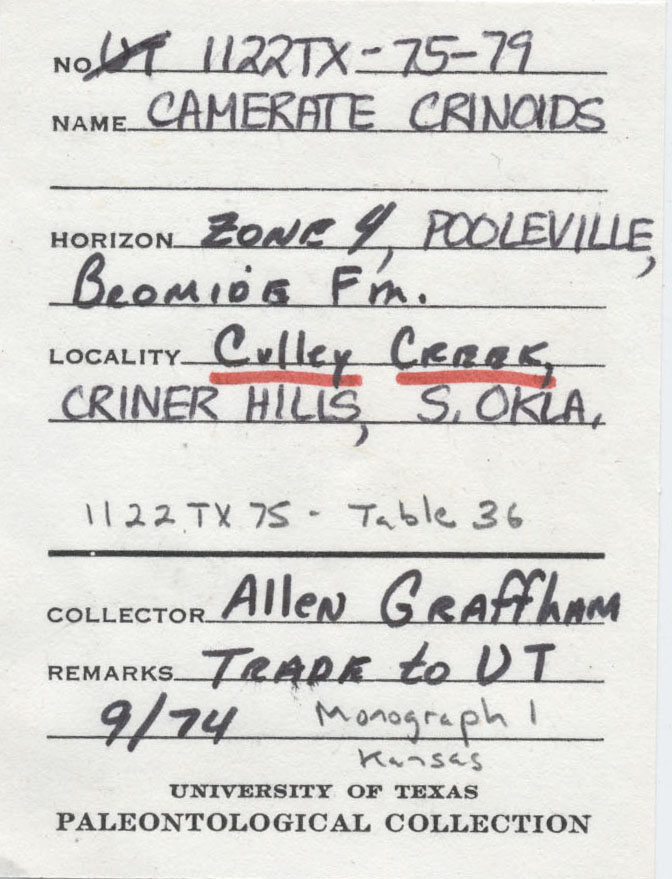 NO. UT 1122TX-75-79
NAME CAMERATE CRINOIDS
HORIZON ZONE 4, POOLEVILLE,
BROMIDE Fm.
LOCALITY Culley CREEK,
CRINER HILLS, S. OKLA.
1122TX75 - Table 36
COLLECTOR Allen GRAFFHAM
REMARKS TRADE to UT
9/74 Monograph 1
Kansas
UNIVERSITY OF TEXAS
PALEONTOLOGICAL COLLECTION